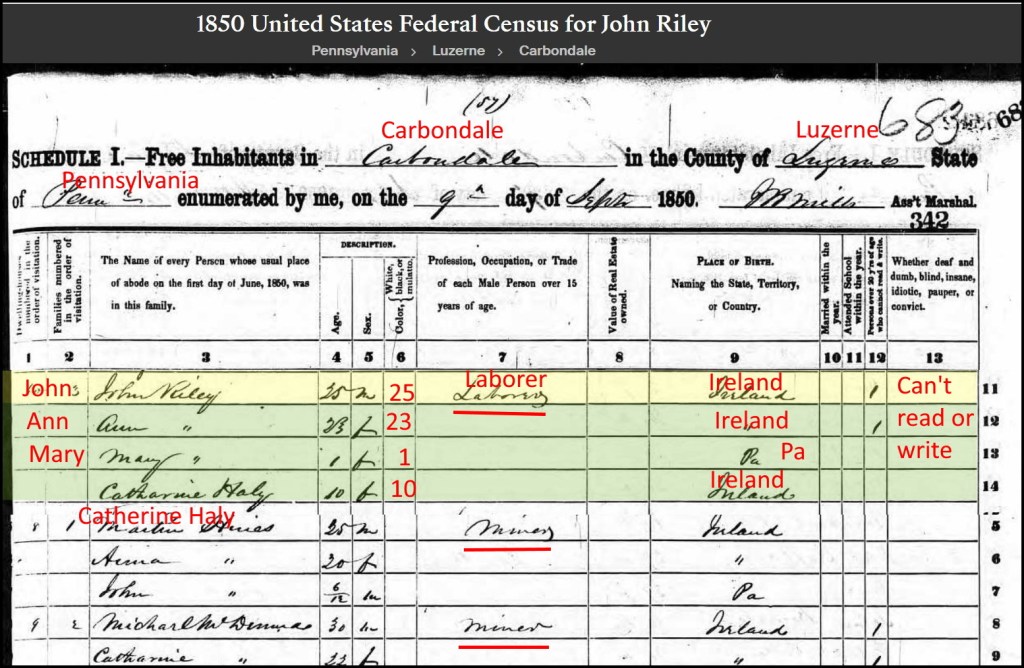 1850 United States Federal Census for John Riley
Pennsylvania > Luzerne > Carbondale
(57)
Carbondale Luzerne 683
SCHEDULE I.—Free Inhabitants in Carbondale in the County of Luzerne State
Pennsylvania
of Penna enumerated by me, on the 9th day of Septr 1850. Ass't Marshal.
342
Dwelling-houses numbered in the order of visitation.
Families numbered in the order of visitation.
The Name of every Person whose usual place of abode on the first day of June, 1850, was in this family.
DESCRIPTION.
Age.
Sex.
Color, { White, black, or mulatto.
Profession, Occupation, or Trade of each Male Person over 15 years of age.
Value of Real Estate owned.
PLACE OF BIRTH. Naming the State, Territory, or Country.
Married within the year.
Attended School within the year.
Persons over 20 y'rs of age who cannot read & write.
Whether deaf and dumb, blind, insane, idiotic, pauper, or convict.
1 2 3 4 5 6 7 8 9 10 11 12 13
John 3 John Riley 25 m 25 Laborer Laborer Ireland Ireland 1 Can't 11
Ann Ann " 23 f 23 Ireland " 1 read or 12
Mary Mary " 1 f 1 Pa Pa write 13
Catharine Haly 10 f 10 Ireland Ireland 14
Catherine Haly
8 1 Martin 25 m Miner Ireland 5
Anna " 20 f " 6
John " 6/12 m Pa 7
9 2 Michael 30 m miner Ireland 1 8
Catharine " 22 f " 1 9